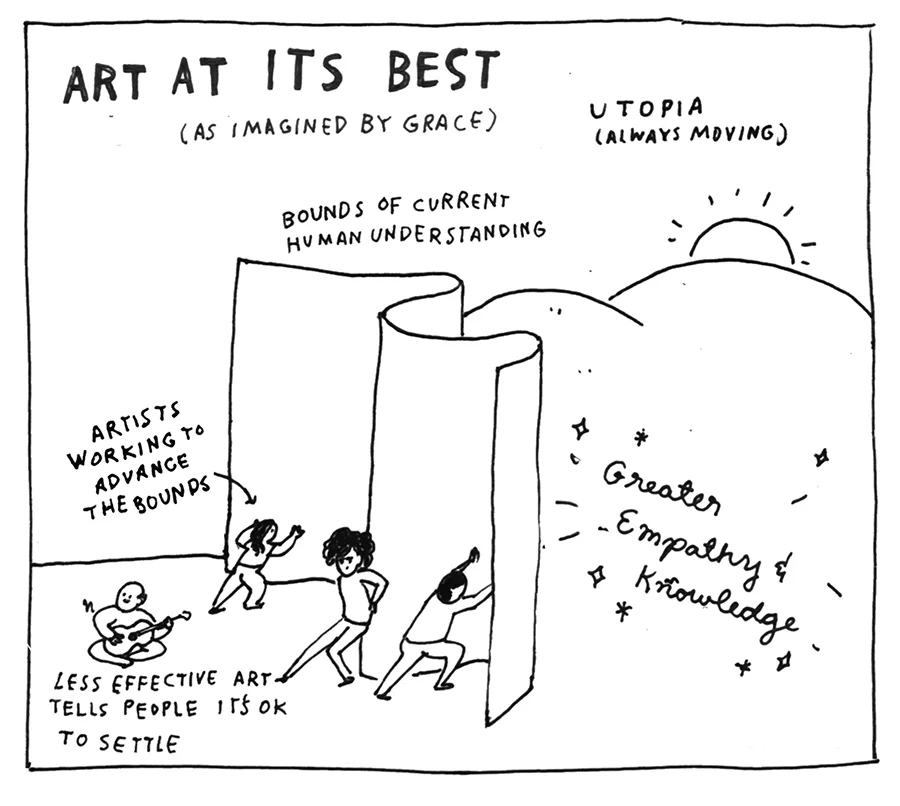 ART AT ITS BEST
(AS IMAGINED BY GRACE)
UTOPIA
(ALWAYS MOVING)
BOUNDS OF CURRENT
HUMAN UNDERSTANDING
ARTISTS
WORKING TO
ADVANCE
THE BOUNDS
Greater
Empathy &
Knowledge
LESS EFFECTIVE ART
TELLS PEOPLE IT'S OK
TO SETTLE